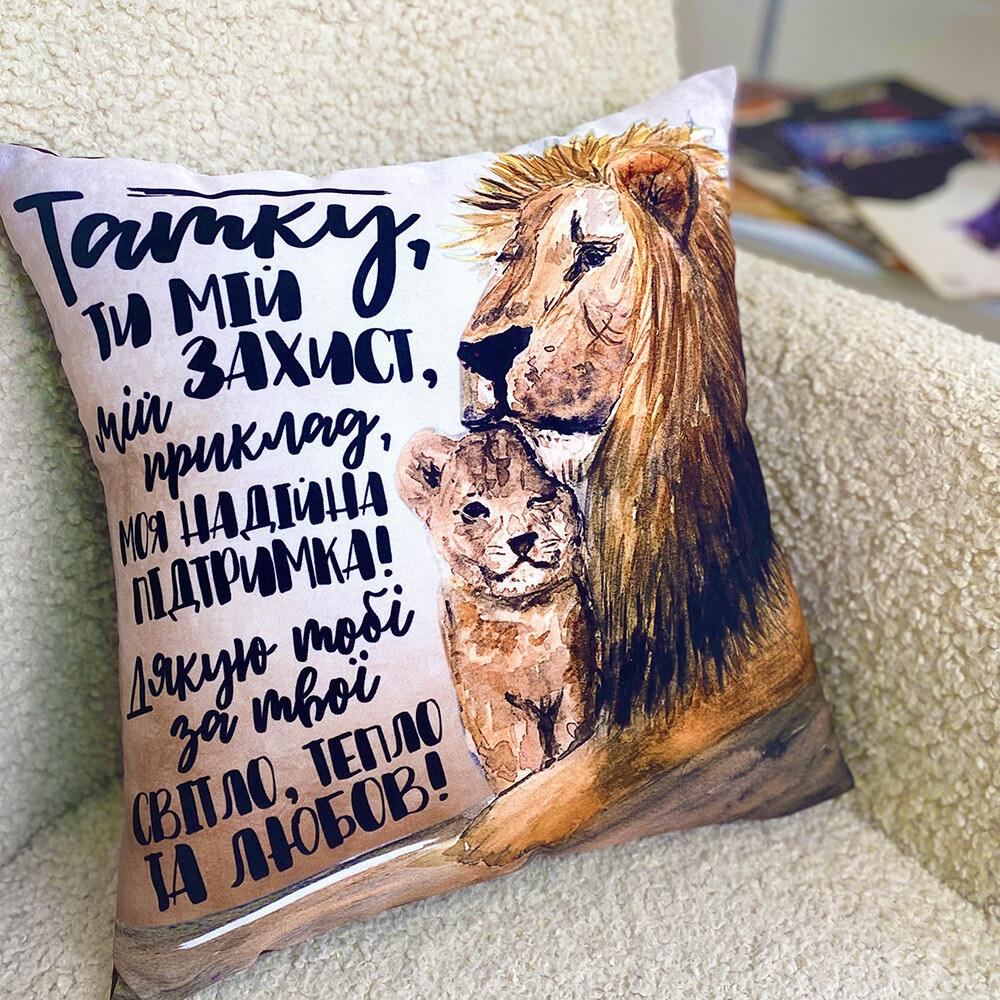 Татку,
ти мій
захист,
мій
приклад,
моя надійна
підтримка!
Дякую тобі
за твої
світло, тепло
та любов!